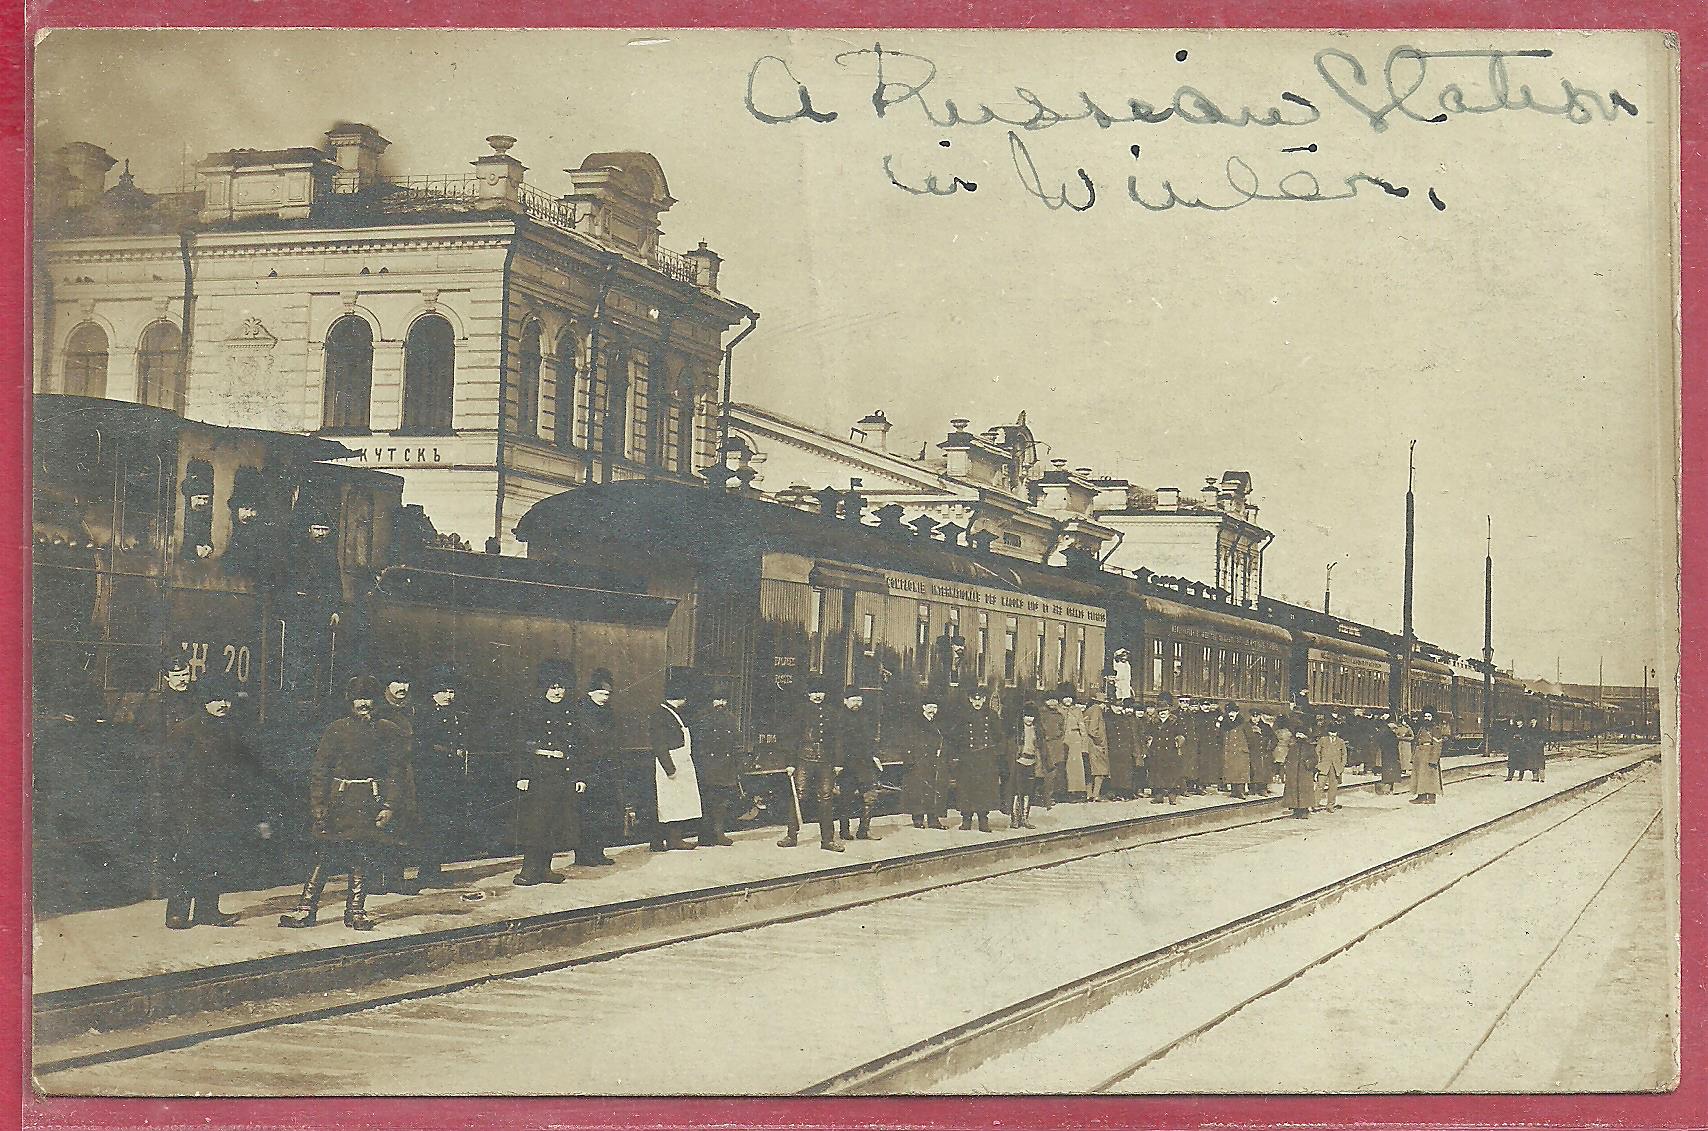 A Russian Station
in Winter.
РКУТСКЪ
COMPAGNIE INTERNATIONALE DES WAGONS LITS ET DES GRANDS EXPRESS
Н 20